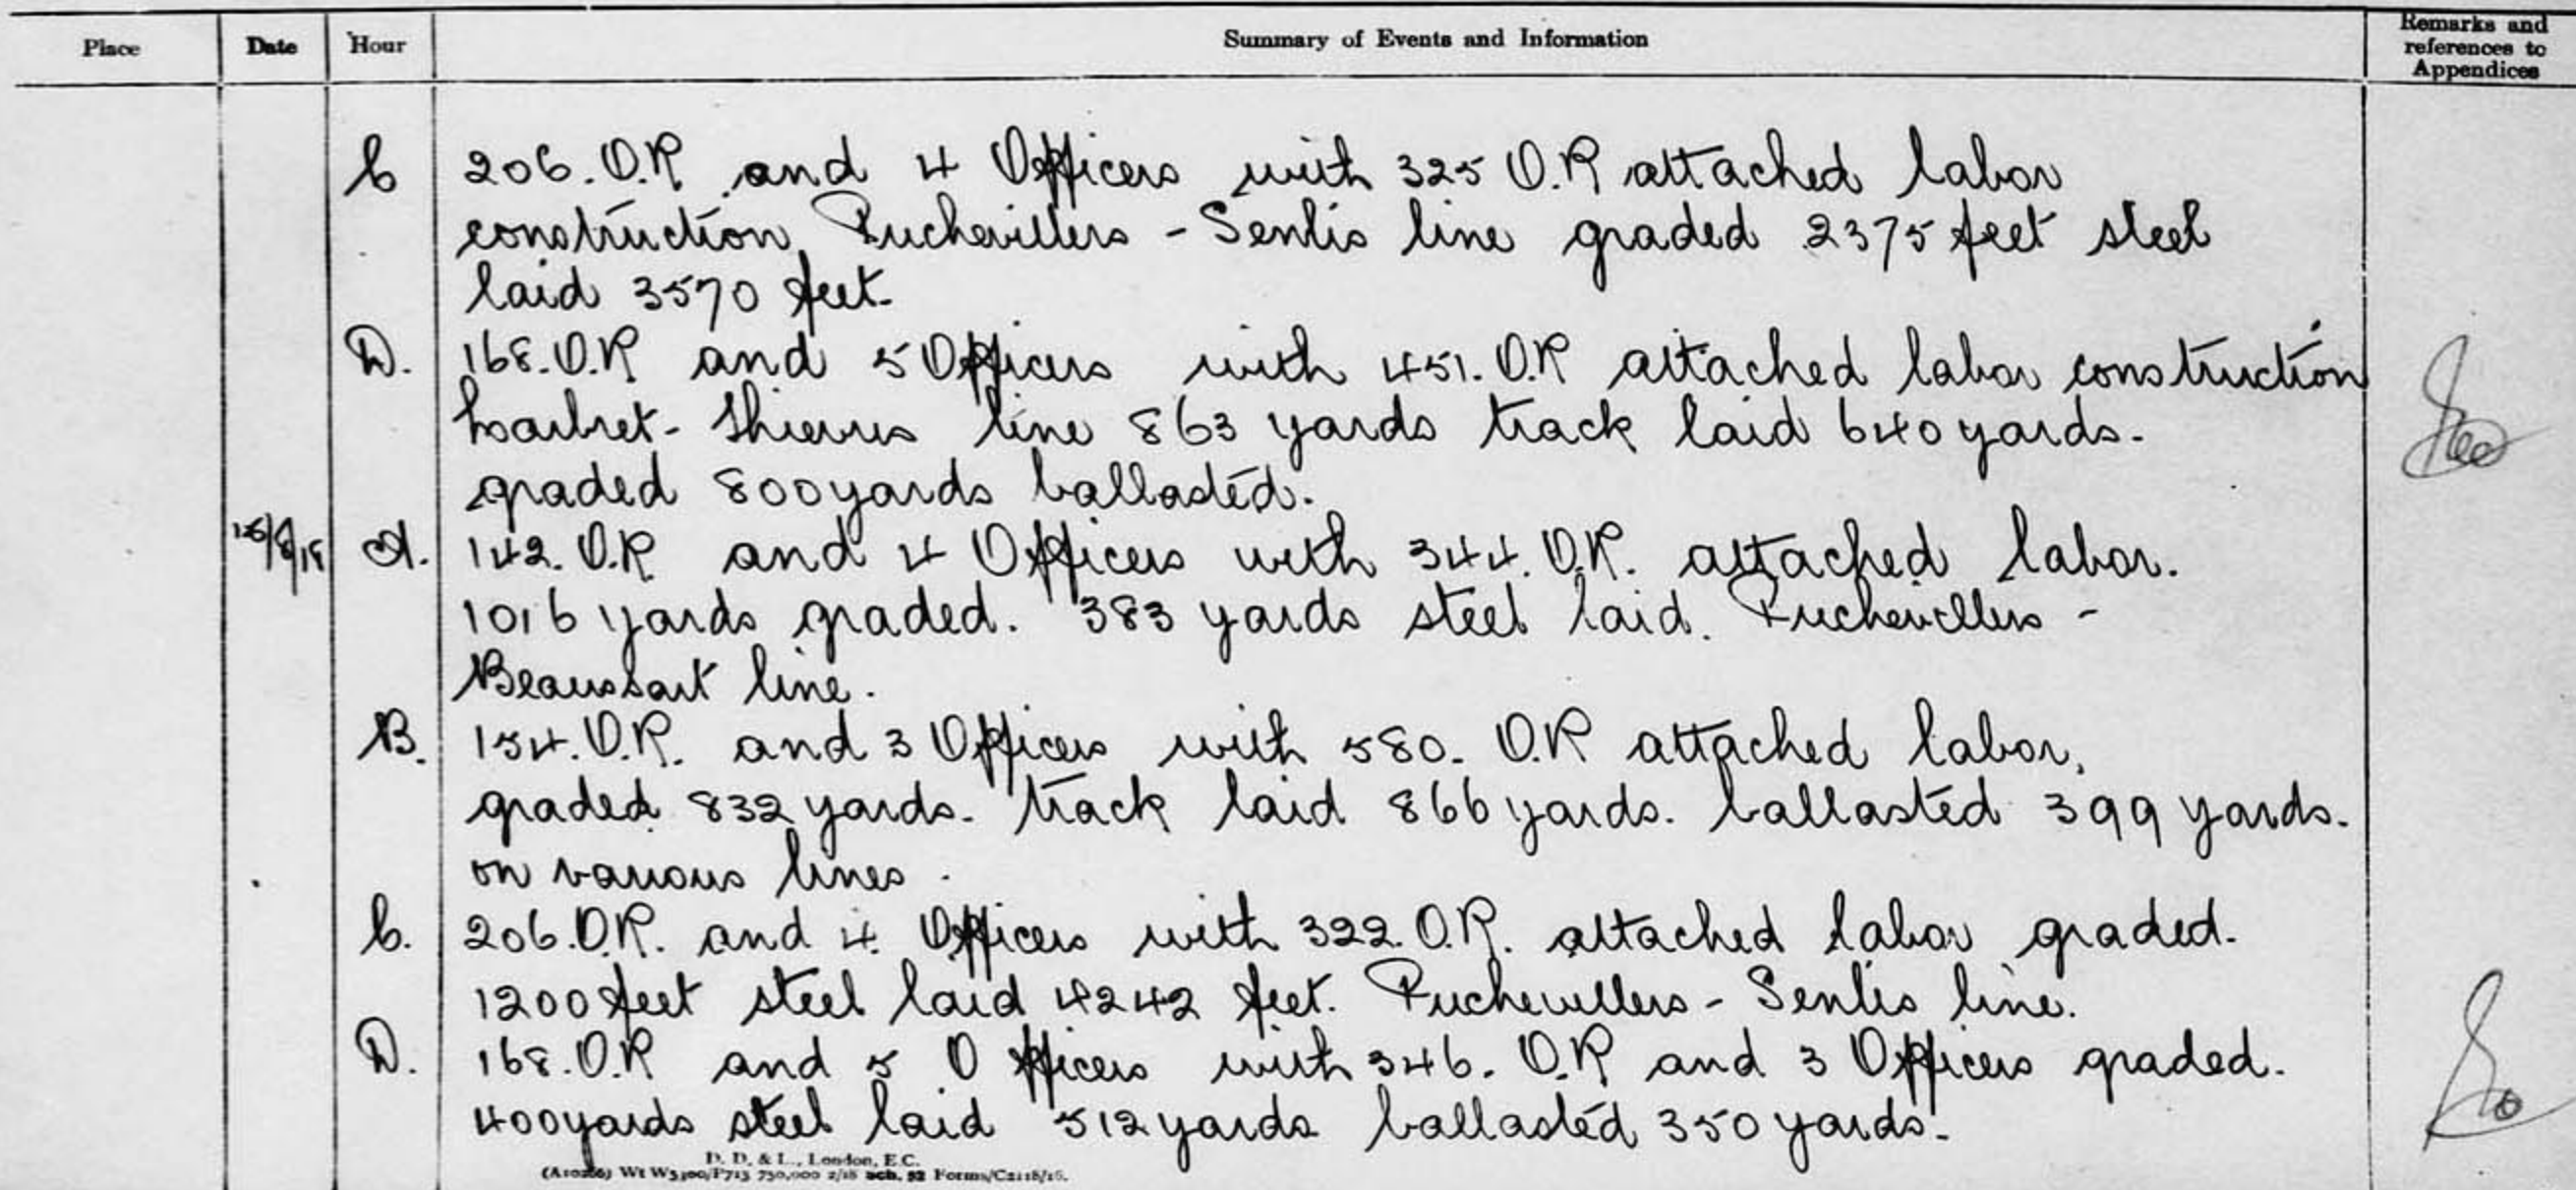 Place Date Hour Summary of Events and Information Remarks and references to Appendices
C 206. O.R and 4 Officers with 325 O.R attached labor
construction Puchevillers - Senlis line graded 2375 feet steel
laid 3570 feet.
D. 168. O.R and 5 Officers with 451. O.R attached labor construction
line 863 yards track laid 640 yards.
graded 800 yards ballasted.
15/8/18 A. 142. O.R and 4 Officers with 344. O.R. attached labor.
1016 yards graded. 383 yards steel laid. Puchevillers -
Beaussart line.
B. 154. O.R. and 3 Officers with 580. O.R attached labor,
graded 832 yards. track laid 866 yards. ballasted 399 yards.
on various lines.
C. 206. O.R. and 4. Officers with 322. O.R. attached labor graded.
1200 feet steel laid 4242 feet. Puchevillers - Senlis line.
D. 168. O.R and 5 Officers with 346. O.R and 3 Officers graded.
400 yards steel laid 512 yards ballasted 350 yards.
D. D. & L., London, E.C.